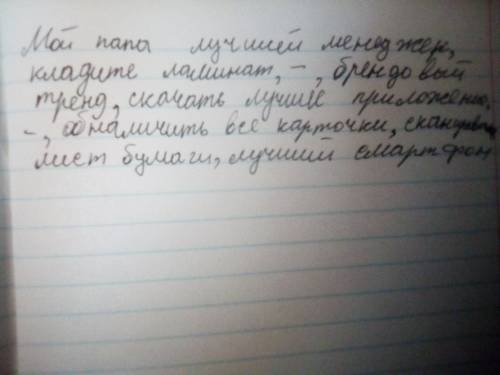 Мой папа лучшей менеджен,
кладите ламинат, –, брендовый
тренд, скачать лучшее приложение,
–, обналичить все карточки, сканировать
лист бумаги, лучший смартфон